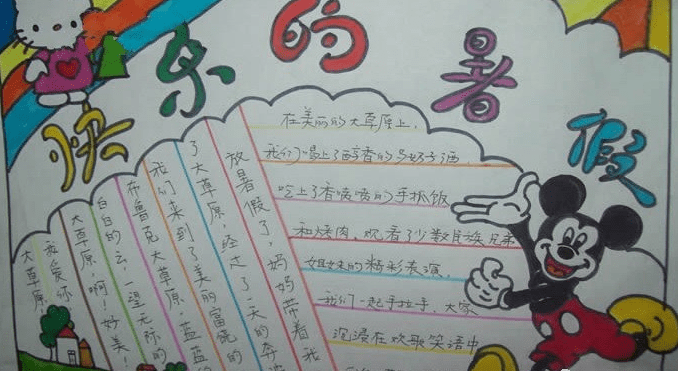 快乐的暑假
放暑假了，妈妈带着我
了大草原 经过了一天的奔
我们来到了美丽富饶的
布鲁克大草原 蓝蓝的
白白的云，一望无际的
大草原，啊！好美！
我爱你
大草原
在美丽的大草原上，
我们喝上了醇香的马奶子酒，
吃上了香喷喷的手抓饭
和烤肉，观看了少数民族兄弟
姐妹的精彩表演，
我们一起手拉手，大家
沉浸在欢歌笑语中